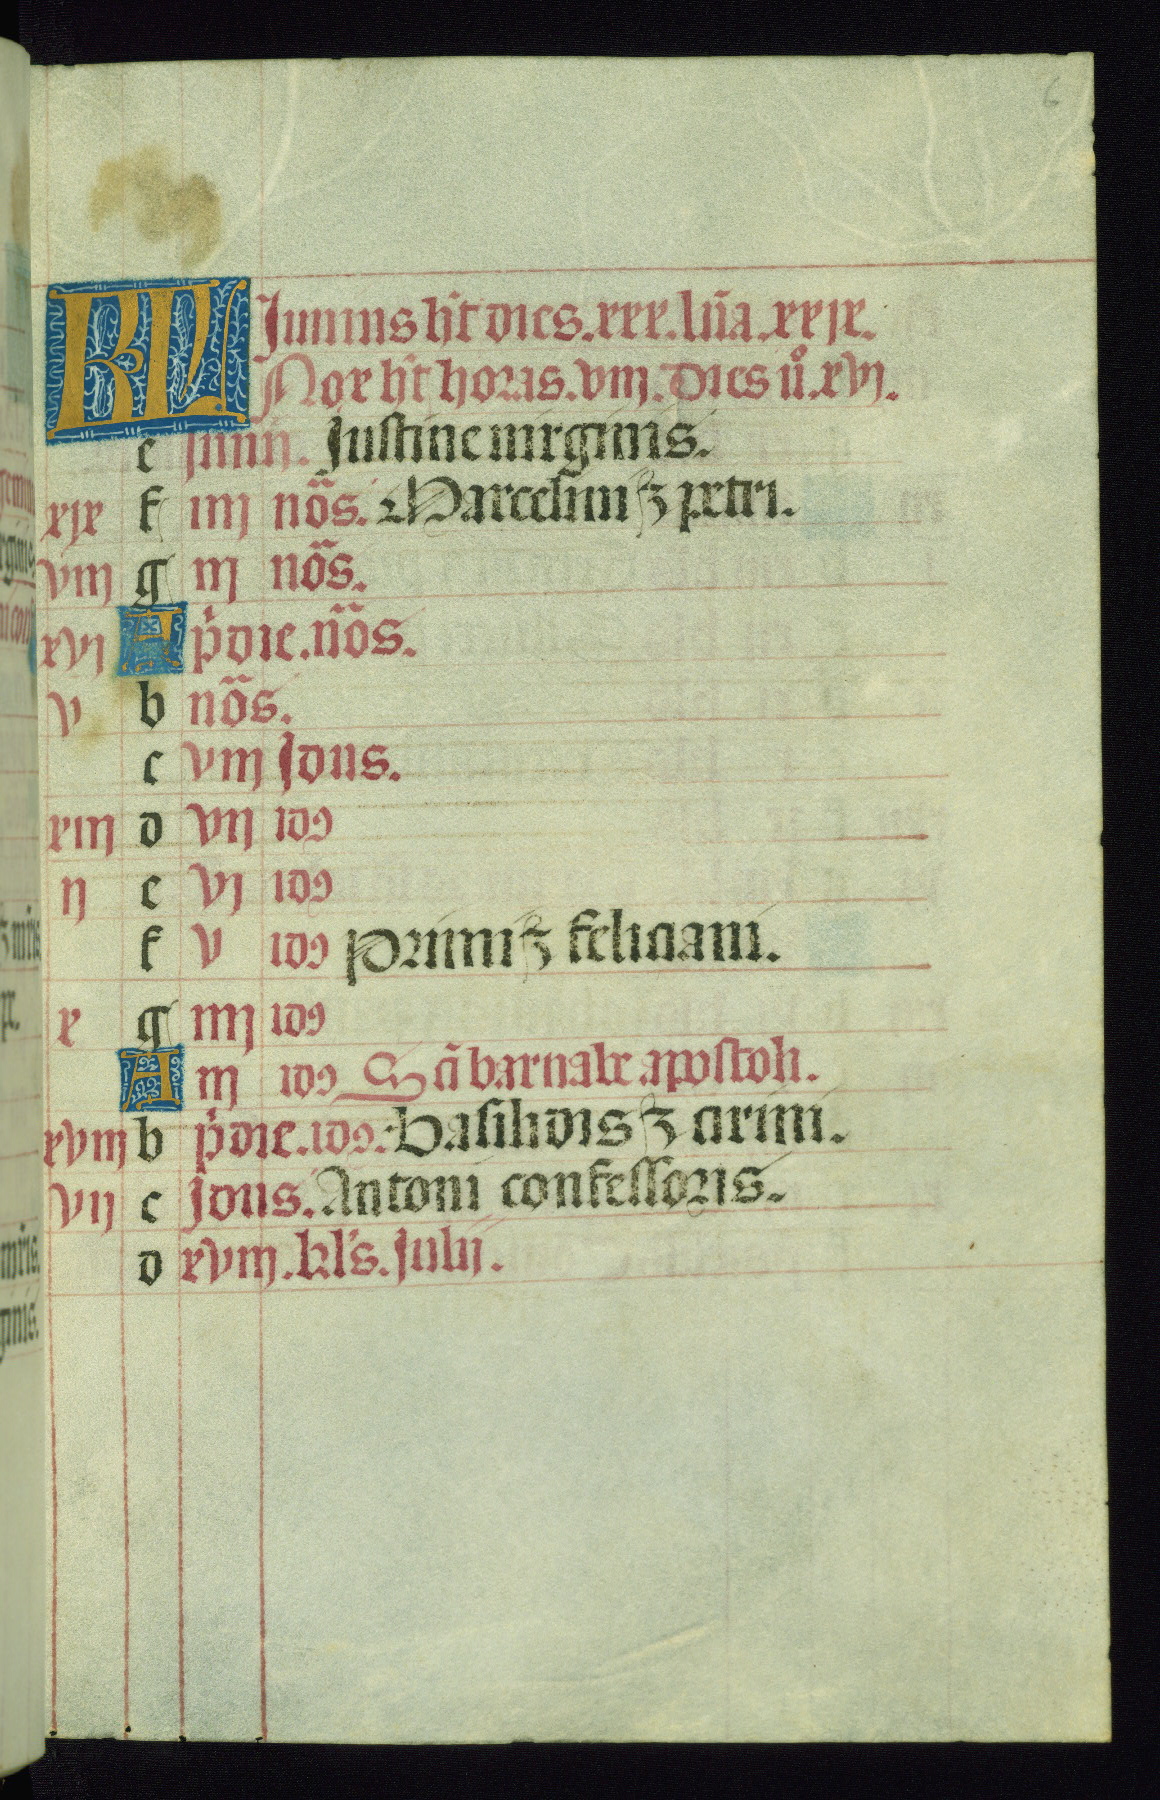 6
KL Junius ht dies .xxx. luna .xxix.
Nox ht horas .viij. Dies u° .xvj.
e iiiij. Justine virginis.
xix f iiij nos. Marcelini & petri.
viij g iij nos.
xvj A pdie .nos.
v b nos.
c viij Jdus.
xiij d vij id9
ij e vj id9
f v id9 Primi & feliciani.
x g iiij id9
A iij id9 Sci barnabe apostoli.
xviij b pdie .id9. Basilidis & cirini.
vij c Jdus. Antoni confessoris.
d xviij .kls. Julij.